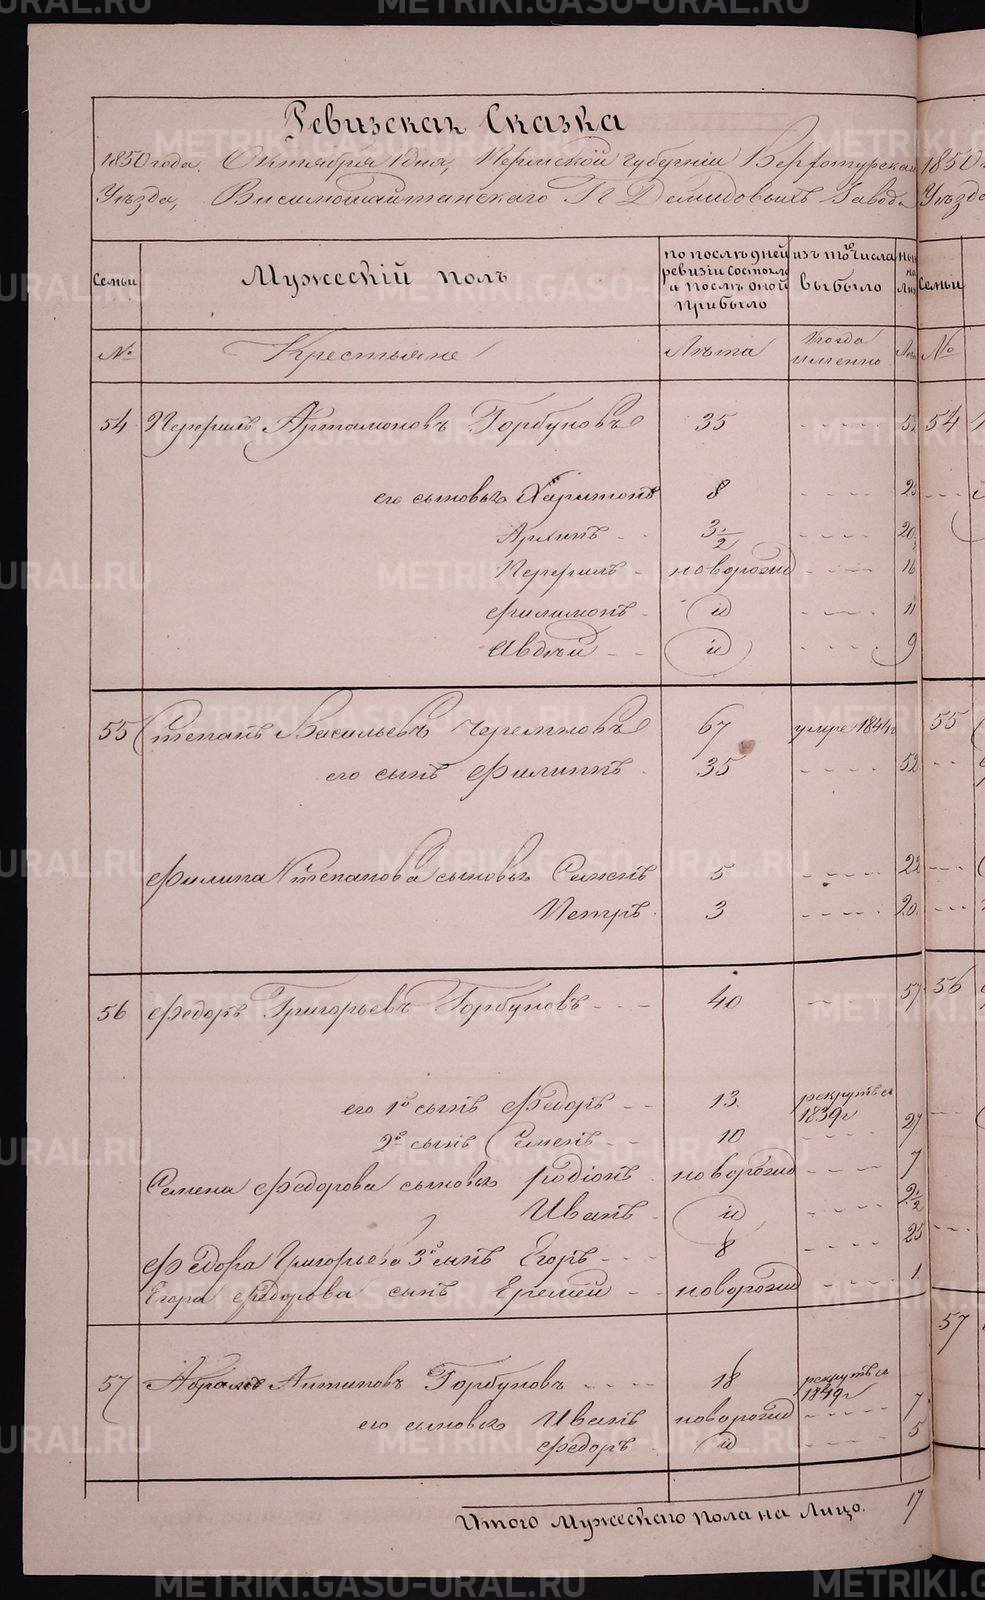 METRIKI.GASO-URAL.RU
Ревизская Сказка
1850 года, Октября 1 дня, Пермской Губерніи Верхотурскаго
Уѣзда, Висимошайтанскаго П Демидовыхъ Завода
Семьи Мужескій полъ по послѣдней ревизіи состояло и послѣ оной прибыло изъ того числа выбыло
№ Крестьяне Лѣта Когда именно
54 Перфилъ Артамоновъ Горбуновъ 35 - - - - 52
его сыновья Харитонъ 8 - - - - 25
Архипъ - - 3 1/2 - - - - 20
Перфилъ - новорожд - - - - 16
Филимонъ - и - - - - 11
Авдѣй - - и - - - - 9
55 Степанъ Васильевъ Черемновъ 67 умре 1844
его сынъ Филиппъ 35 - - - - 52
Филипа Степанова сыновья Семенъ 5 - - - - 22
Петръ 3 - - - - 20
56 Федоръ Григорьевъ Горбуновъ - - - 40 - - 57
его 1й сынъ Федоръ - - 13 рекрутъ съ 1839 г
2й сынъ Семенъ - - 10 - - - 27
Семена Федорова сыновья Родіонъ новорожд - - - - 7
Иванъ - и - - - - 2 1/2
Федора Григорьева 3й сынъ Егоръ - - - 8 - - - - 25
Егора Федорова сынъ Еремей - - новорожд - - - - 1
57 Абрамъ Антиповъ Горбуновъ - - - - 18 рекрутъ съ 1849 г
его сыновья Иванъ новорожд - - - - 7
Федоръ и - - - - 5
Итого Мужескаго пола на Лицо. 17
1850
Уѣзда
Семьи
№
54
55
56
57